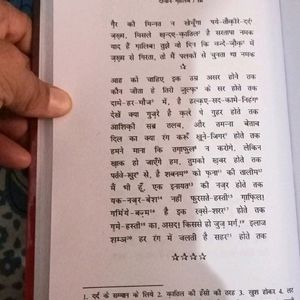 ग़ैर की मिन्नत न खेंचूँगा पये-तौक़ीरे-दर्द¹
ज़ख़्म, मिसले ख़न्दए-क़ातिल² है सरतापा नमक
याद हैं ग़ालिब! तुझे वो दिन कि वज्दे-ज़ौक़³ में
ज़ख़्म से गिरता, तो मैं पलकों से चुनता था नमक
☆
आह को चाहिए इक उम्र असर होने तक
कौन जीता है तिरी ज़ुल्फ़ के सर होने तक
दामे-हर-मौज में, है हल्क़ए-सद-कामे-निहंग
देखें क्या गुज़रे है क़तरे पे गुहर होने तक
आशिक़ी सब्र तलब, और तमन्ना बेताब
दिल का क्या रंग करूँ ख़ूने-जिगर होने तक
हमने माना कि तग़ाफ़ुल न करोगे, लेकिन
ख़ाक हो जाएँगे हम, तुमको ख़बर होने तक
परतवे-ख़ुर से, है शबनम को फ़ना की तालीम
मैं भी हूँ, एक इनायत की नज़र होने तक
यक-नज़र-बेश नहीं फ़ुरसते-हस्ती ग़ाफ़िल!
गर्मिये-बज़्म है इक रक़्से-शरर होने तक
ग़मे-हस्ती का, असद! किससे हो जुज़ मर्ग, इलाज
शम्अ हर रंग में जलती है सहर होने तक
☆☆☆☆
1. दर्द के सम्मान के लिये 2. क़ातिल की हँसी की तरह 3. ख़ुश होकर 4.